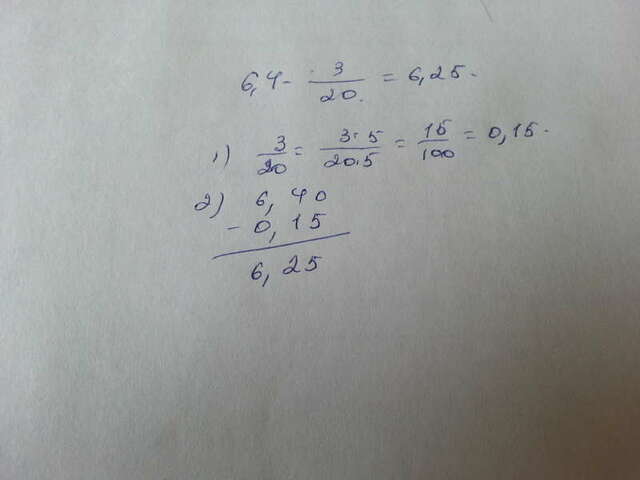 6,4 - 3/20 = 6,25.
1) 3/20 = 3·5/20·5 = 15/100 = 0,15.
2) 6,40
- 0,15
6,25